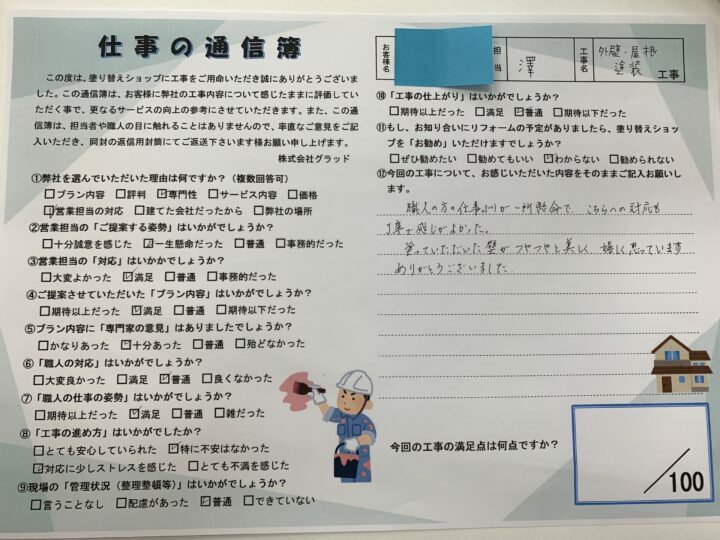 仕事の通信簿
この度は、塗り替えショップに工事をご用命いただき誠にありがとうございま
した。この通信簿は、お客様に弊社の工事内容について感じたままに評価してい
ただく事で、更なるサービスの向上の参考にさせていただきます。また、この通
信簿は、担当者や職人の目に触れることはありませんので、率直なご意見をご記
入いただき、同封の返信用封筒にてご返送下さいます様お願い申し上げます。
株式会社グラッド
①弊社を選んでいただいた理由は何ですか？（複数回答可）
□プラン内容 □評判 ☑専門性 □サービス内容 □価格
☑営業担当の対応 □建てた会社だったから □弊社の場所
②営業担当の「ご提案する姿勢」はいかがでしょうか？
□十分誠意を感じた ☑一生懸命だった □普通 □事務的だった
③営業担当の「対応」はいかかでしょうか？
□大変よかった ☑満足 □普通 □事務的だった
④ご提案させていただいた「プラン内容」はいかがでしょうか？
□期待以上だった ☑満足 □普通 □期待以下だった
⑤プラン内容に「専門家の意見」はありましたでしょうか？
□かなりあった ☑十分あった □普通 □殆どなかった
⑥「職人の対応」はいかがでしょうか？
□大変良かった □満足 ☑普通 □良くなかった
⑦「職人の仕事の姿勢」はいかがでしょうか？
□期待以上だった ☑満足 □普通 □雑だった
⑧「工事の進め方」はいかがでしたか？
□とても安心していられた ☑特に不安はなかった
☑対応に少しストレスを感じた □とても不満を感じた
⑨現場の「管理状況（整理整頓等）」はいかがでしょうか？
□言うことなし □配慮があった ☑普通 □できていない
お客様名 担当 澤 工事名 外壁・屋根塗装 工事
⑩「工事の仕上がり」はいかがでしょうか？
□期待以上だった □満足 ☑普通 □期待以下だった
⑪もし、お知り合いにリフォームの予定がありましたら、塗り替えショッ
プを「お勧め」いただけますでしょうか？
□ぜひ勧めたい □勧めてもいい ☑わからない □勧められない
⑫今回の工事について、お感じいただいた内容をそのままご記入お願いし
ます。
職人の方の仕事ぶりが一所懸命で、こちらへの対応も
丁寧で感じがよかった。
塗っていただいた壁がつやつやと美しく、嬉しく思っています
ありがとうございました
今回の工事の満足点は何点ですか？
/100